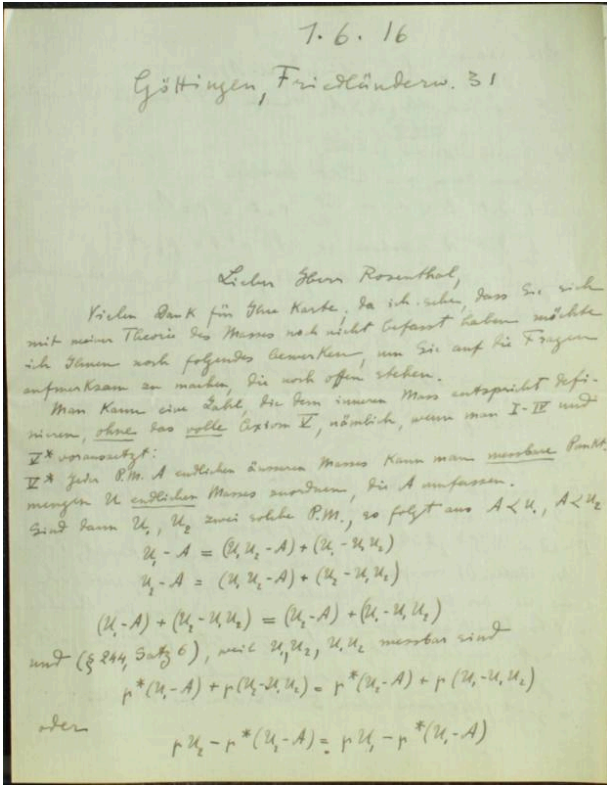 1. 6. 16
Göttingen, Friedländerw. 31
Lieber Herr Rosenthal,
Vielen Dank für Ihre Karte, da ich sehe, dass Sie sich
mit meiner Theorie des Masses noch nicht befasst haben möchte
ich Ihnen noch folgendes bemerken, um Sie auf die Fragen
aufmerksam zu machen, die noch offen stehen.
Man kann eine Zahl, die dem inneren Mass entspricht defi-
nieren, ohne das volle Axiom V, nämlich, wenn man I-IV und
V* voraussetzt:
V* jeder P.M. A endlichen äusseren Masses kann man messbare Punkt-
mengen U endlichen Masses zuordnen, die A umfassen.
Sind dann U₁, U₂ zwei solche P.M., so folgt aus A < U₁, A < U₂
U₁ - A = (U₁U₂ - A) + (U₁ - U₁U₂)
U₂ - A = (U₁U₂ - A) + (U₂ - U₁U₂)
(U₁ - A) + (U₂ - U₁U₂) = (U₂ - A) + (U₁ - U₁U₂)
und (§ 244, Satz 6), weil U₁, U₂, U₁U₂ messbar sind
μ*(U₁ - A) + μ(U₂ - U₁U₂) = μ*(U₂ - A) + μ(U₁ - U₁U₂)
oder
μU₂ - μ*(U₂ - A) = μU₁ - μ*(U₁ - A)